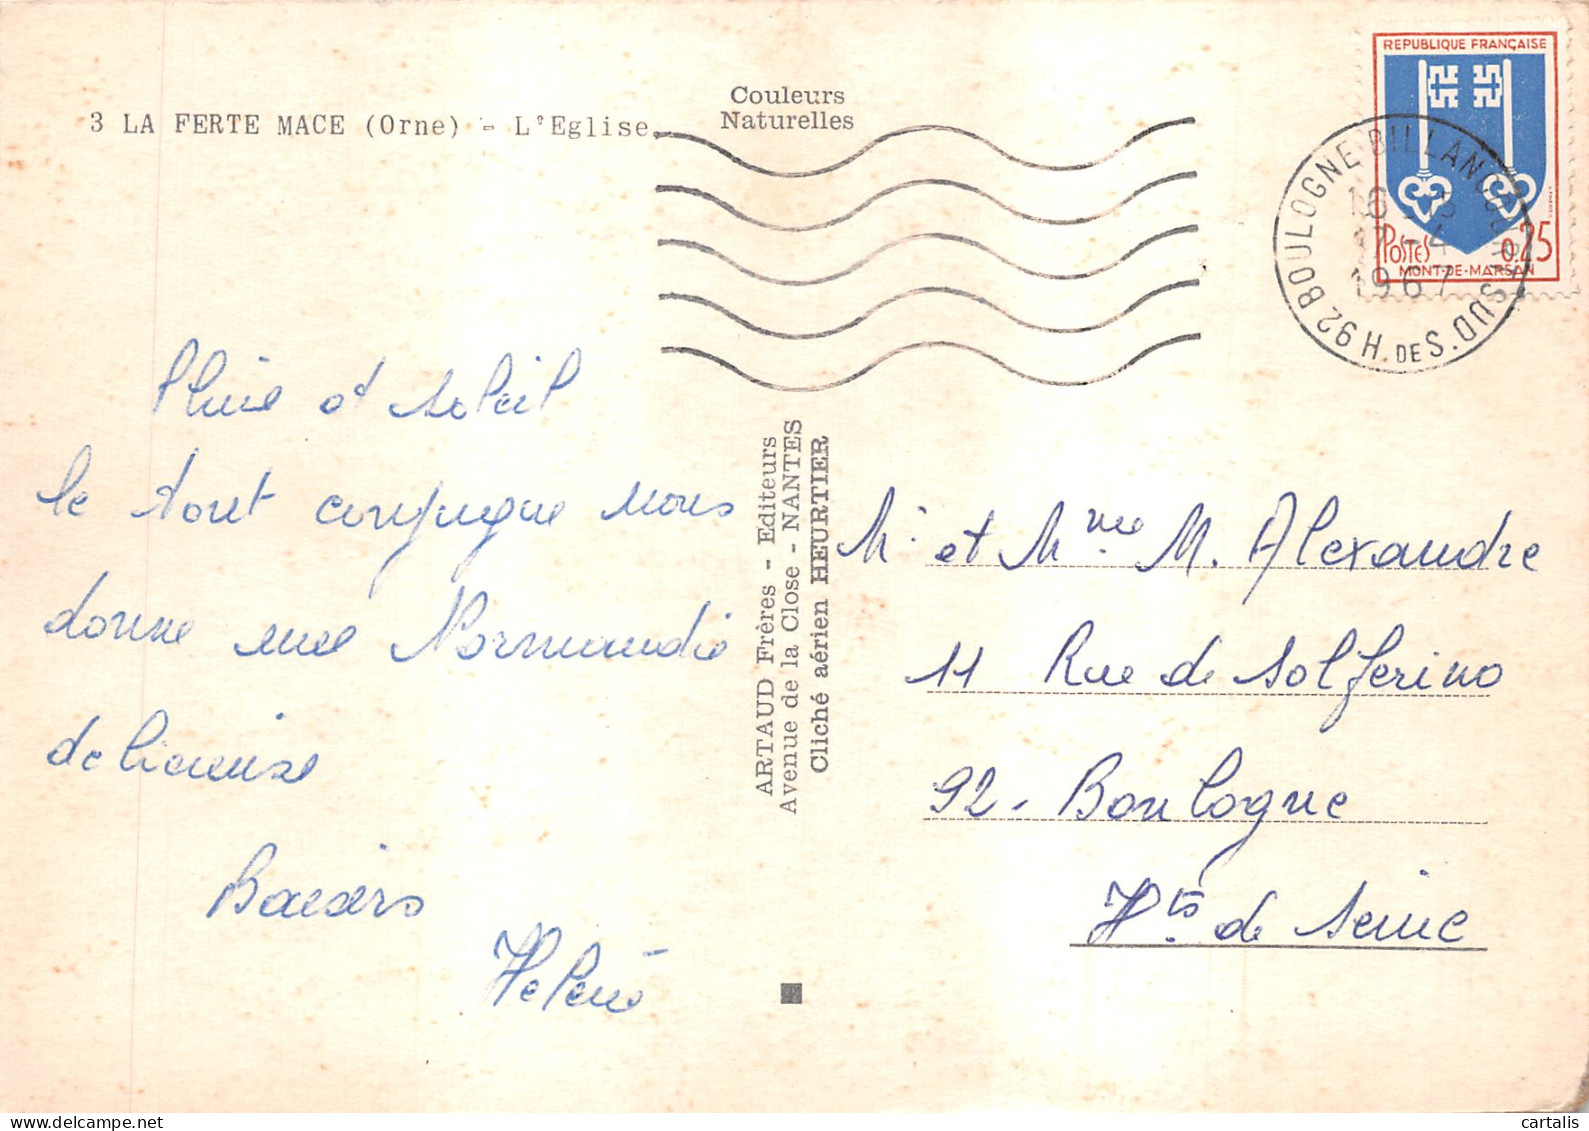 3 LA FERTE MACE (Orne) - L'Eglise
Couleurs
Naturelles
REPUBLIQUE FRANÇAISE
POSTES 0,25
MONT-DE-MARSAN
92 BOULOGNE-BILLANCOURT SUD
H. DE S.
17-4
1967
Pluie et soleil
le tout conjugue nous
donne une Normandie
delicieuse
Baisers
Helene
ARTAUD Frères - Editeurs
Avenue de la Close - NANTES
Cliché aérien HEURTIER
Mr et Mme M. Alexandre
11 Rue de Solferino
92 - Boulogne
Hts de Seine
cartalis